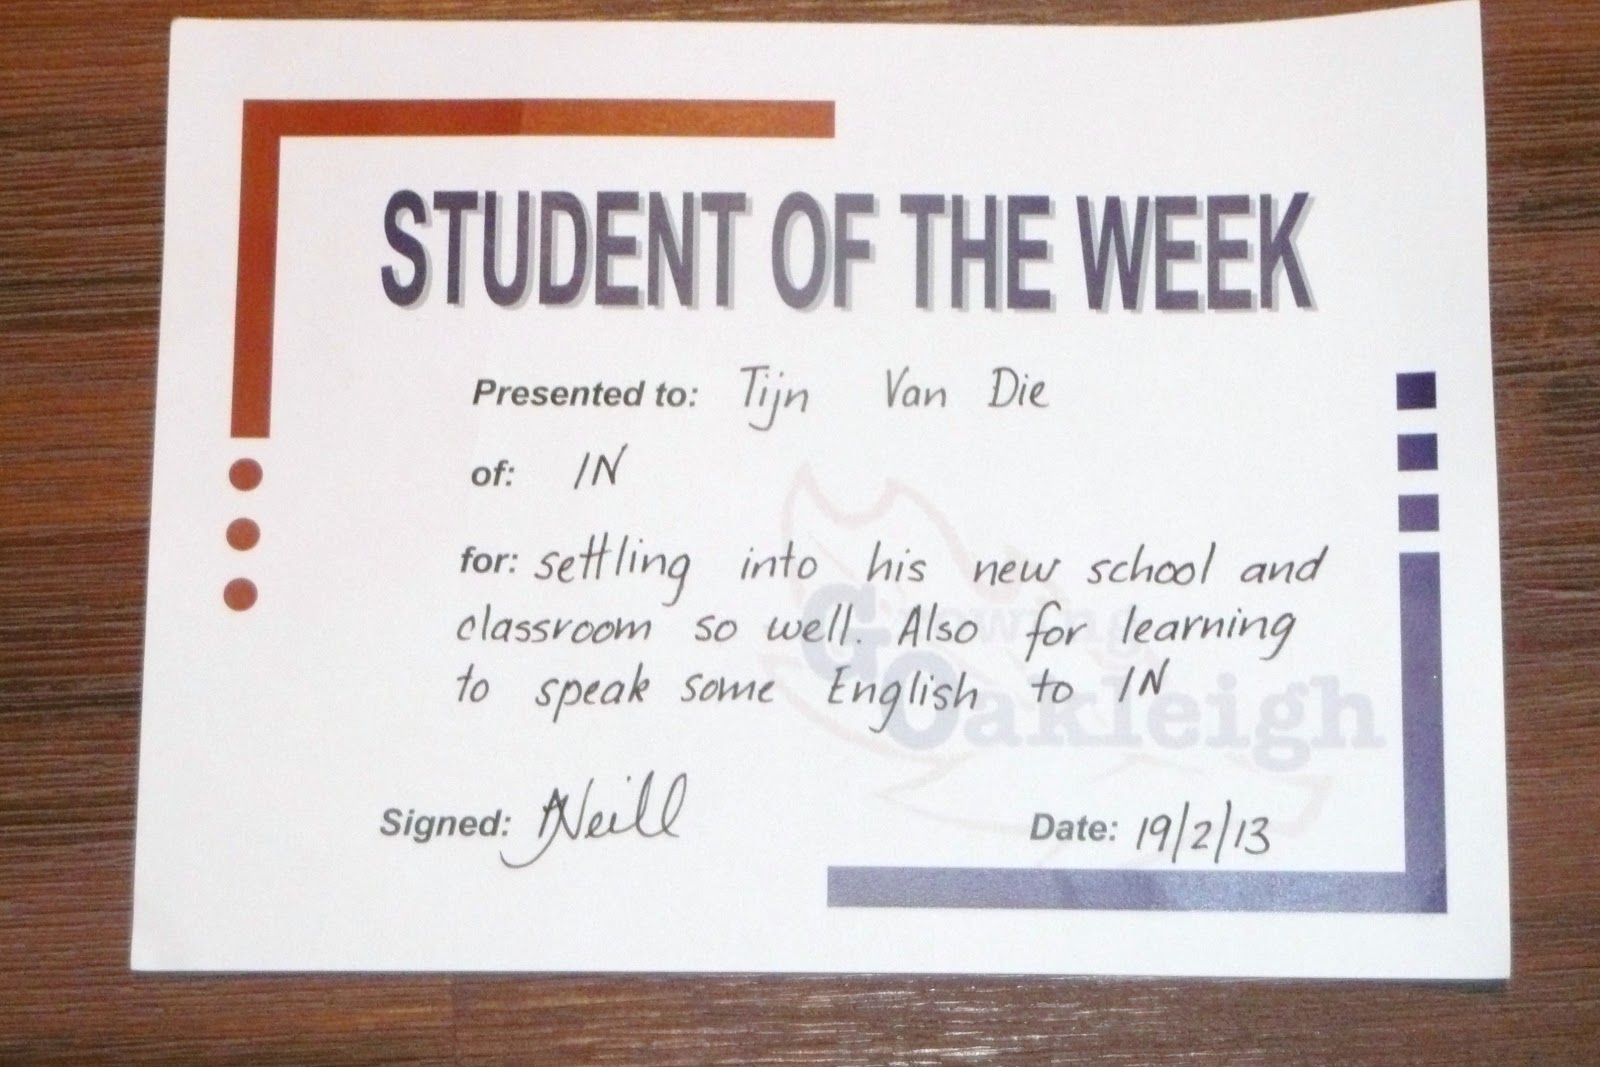 STUDENT OF THE WEEK
Presented to: Tijn Van Die
of: 1N
for: settling into his new school and
classroom so well. Also for learning
to speak some English to 1N
Growing
Oakleigh
Signed: ANeill
Date: 19/2/13